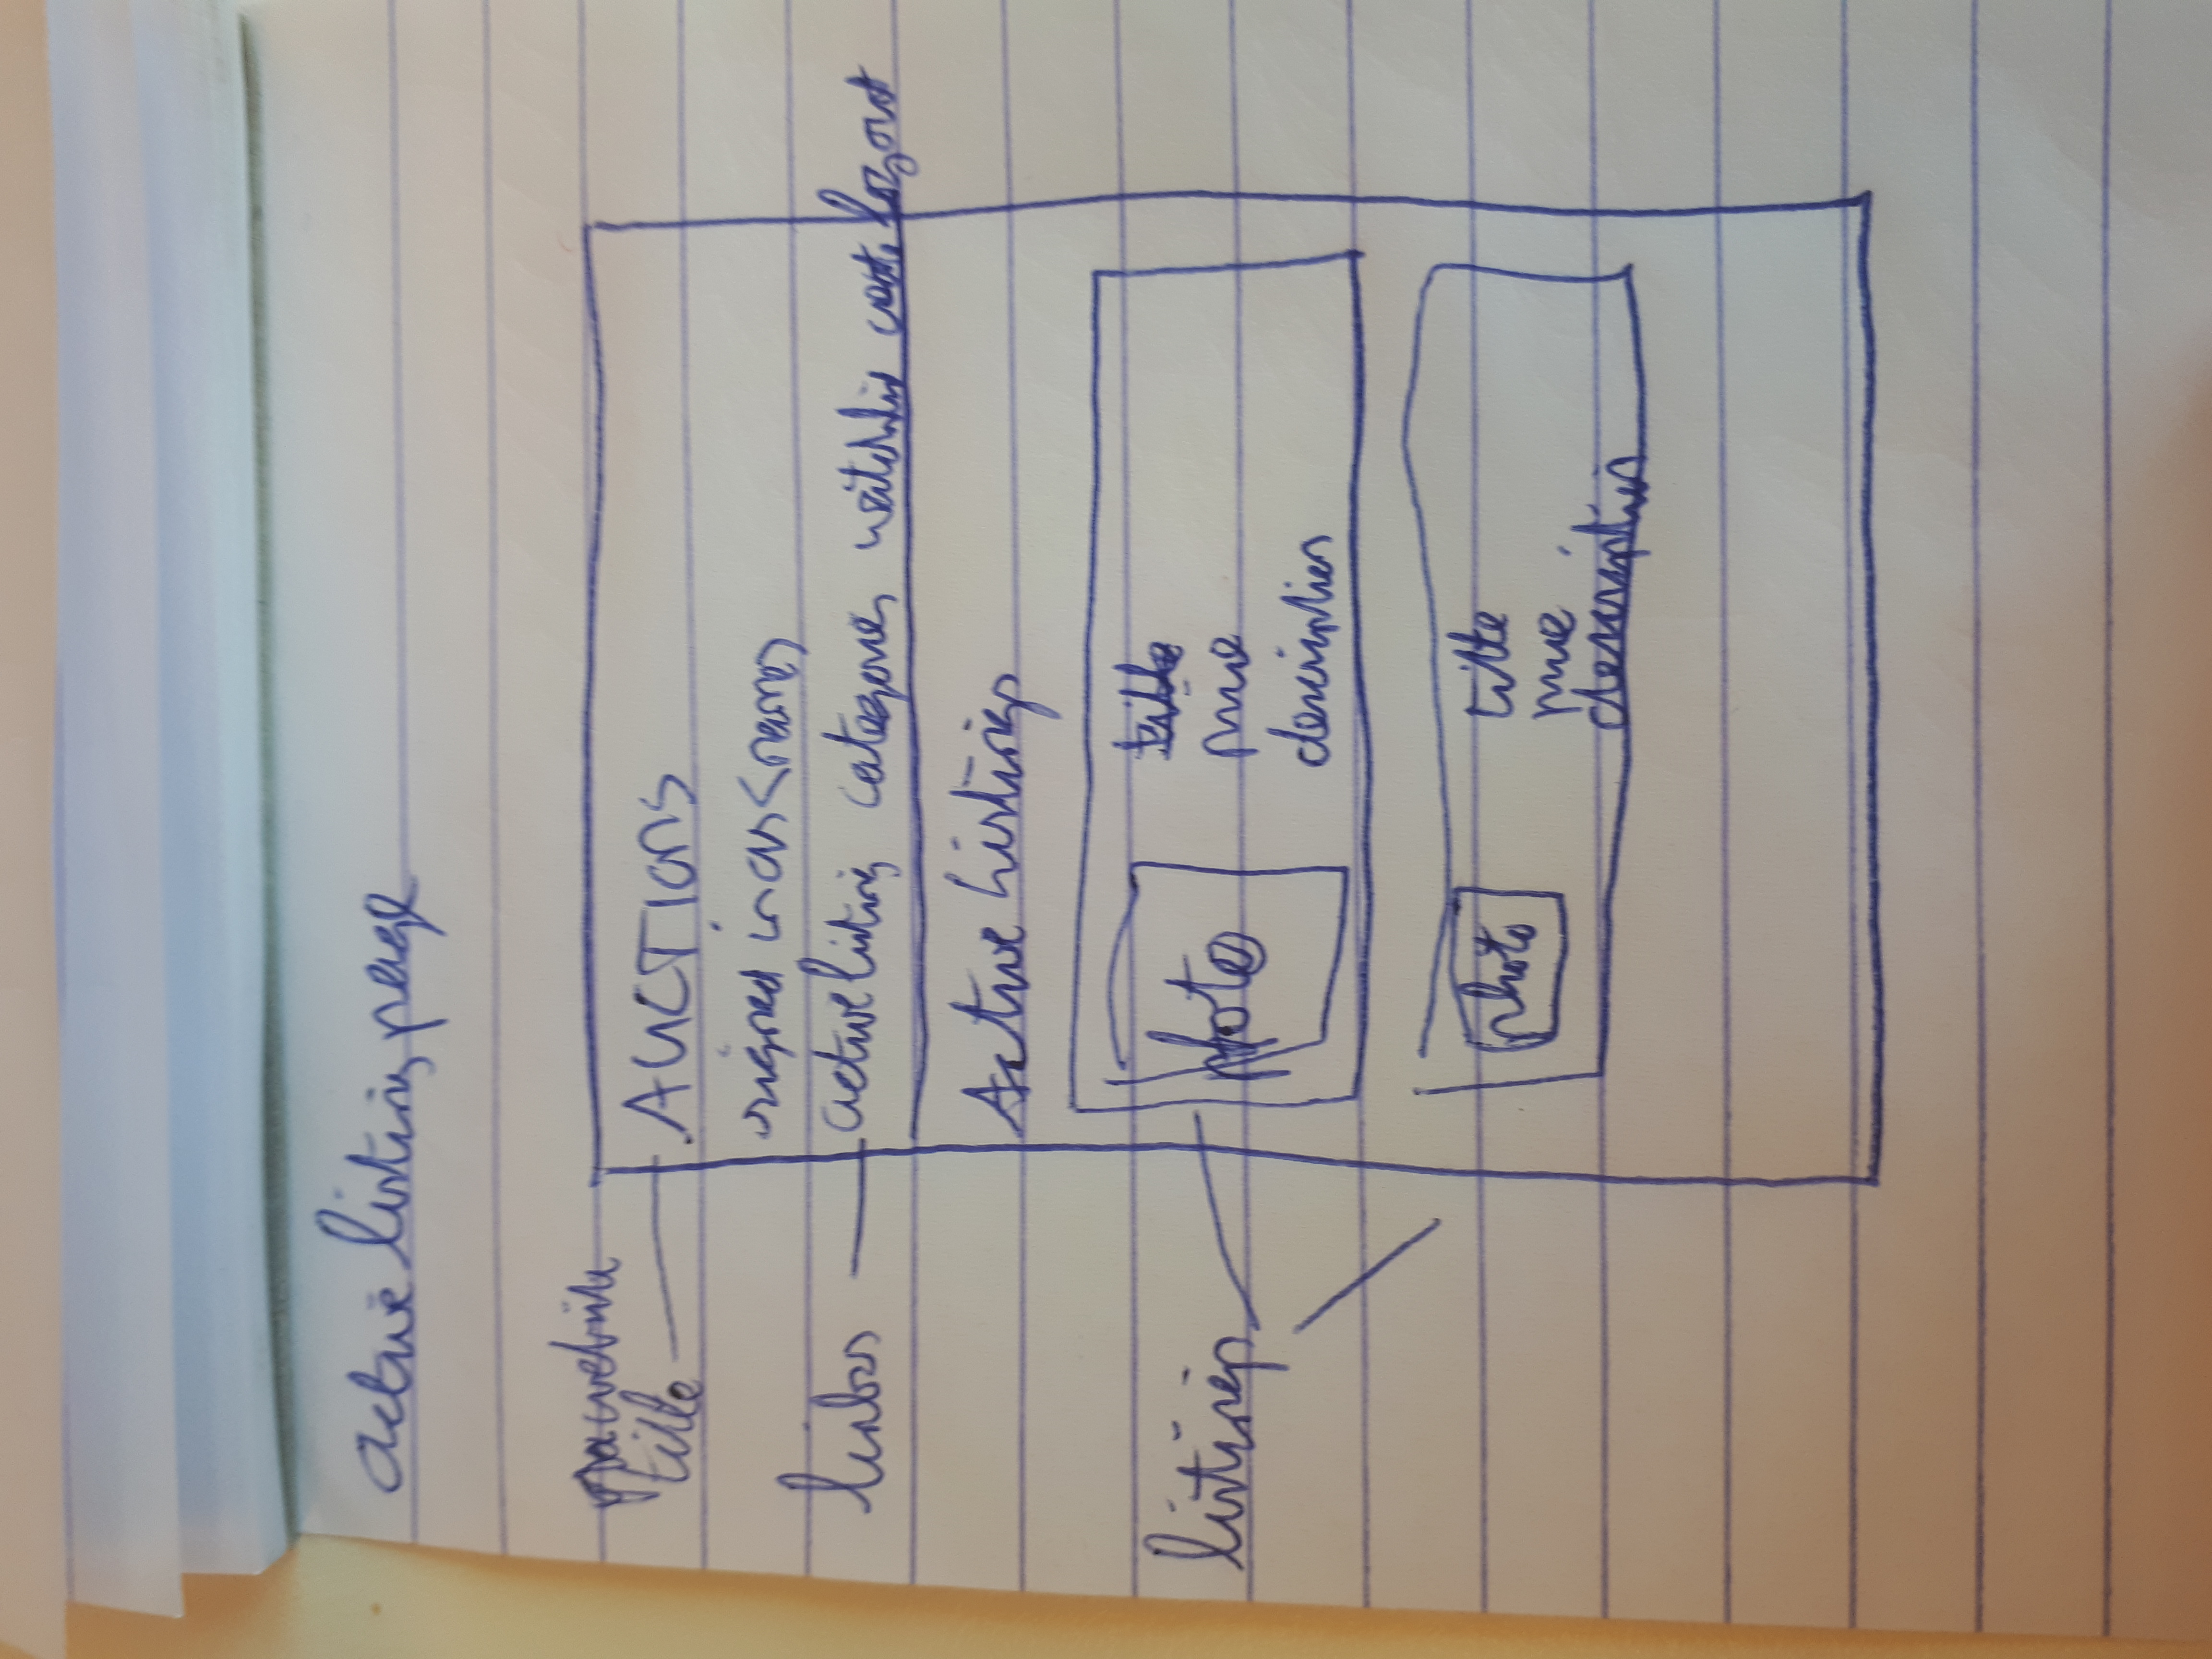 active listing page
website
title
AUCTIONS
signed in as <name>
links
active listing categories watchlist create log out
Active Listings
listings
photo
title
price
description
photo
title
price
description